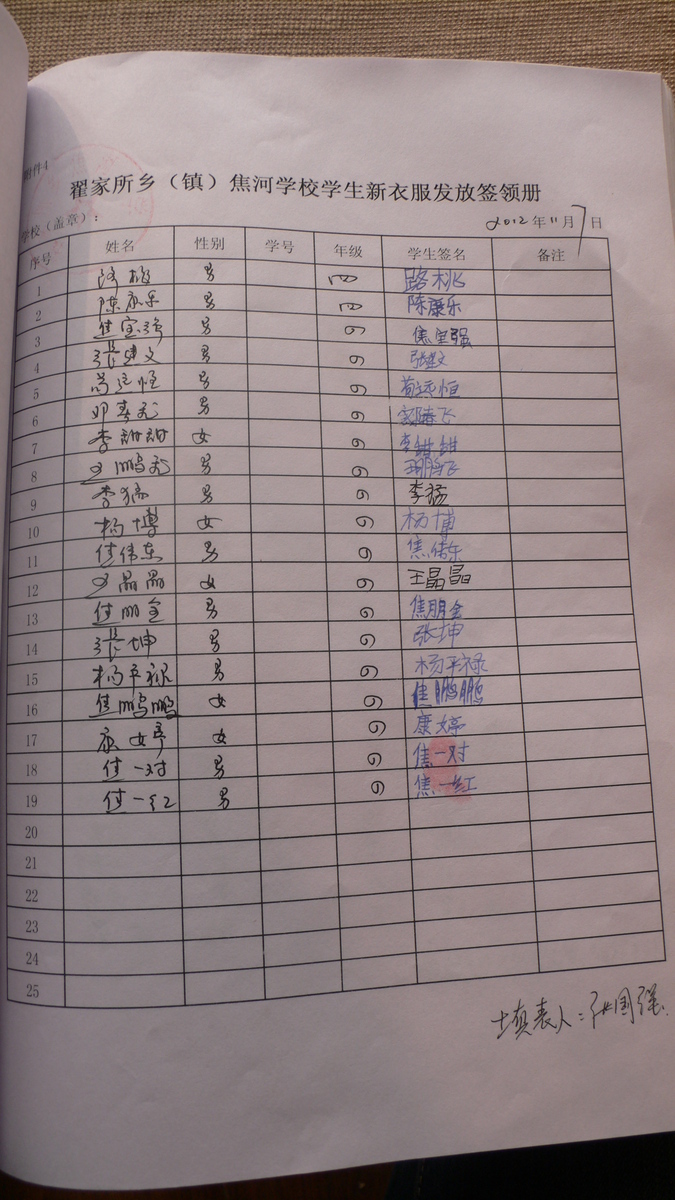 附件4
翟家所乡（镇）焦河学校学生新衣服发放签领册
学校（盖章）： 2012年11月7日
序号 姓名 性别 学号 年级 学生签名 备注
1 路桃 男 四 路桃
2 陈康乐 男 四 陈康乐
3 焦宝强 男 四 焦宝强
4 张建文 男 四 张建文
5 苟远恒 男 四 苟远恒
6 男 四
7 李甜甜 女 四 李甜甜
8 王鹏飞 男 四 王鹏飞
9 李猛 男 四 李猛
10 杨博 女 四 杨博
11 焦伟东 男 四 焦伟东
12 王晶晶 女 四 王晶晶
13 焦朋全 男 四 焦朋全
14 张坤 男 四 张坤
15 杨平禄 男 四 杨平禄
16 焦鹏鹏 女 四 焦鹏鹏
17 康婷 女 四 康婷
18 焦一对 男 四 焦一对
19 焦一红 男 四 焦一红
20
21
22
23
24
25
填表人：张国强